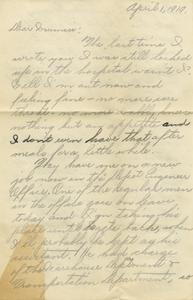 April 1, 1919.
Dear
The last time I
wrote you I was still locked
up in the hospital wasn't I
Well I'm out now and
feeling fine - no more
there - no more
nothing but and
I don't even have that after
meals for a little while.
They have me on a new
job now in the Dept Engineer
Office. One of the regular men
in the office goes on leave
today and I'm taking his
place until he gets back, when
I'll probably be kept as his
assistant. He had charge
of the Warehouse Department &
Transportation Department, so